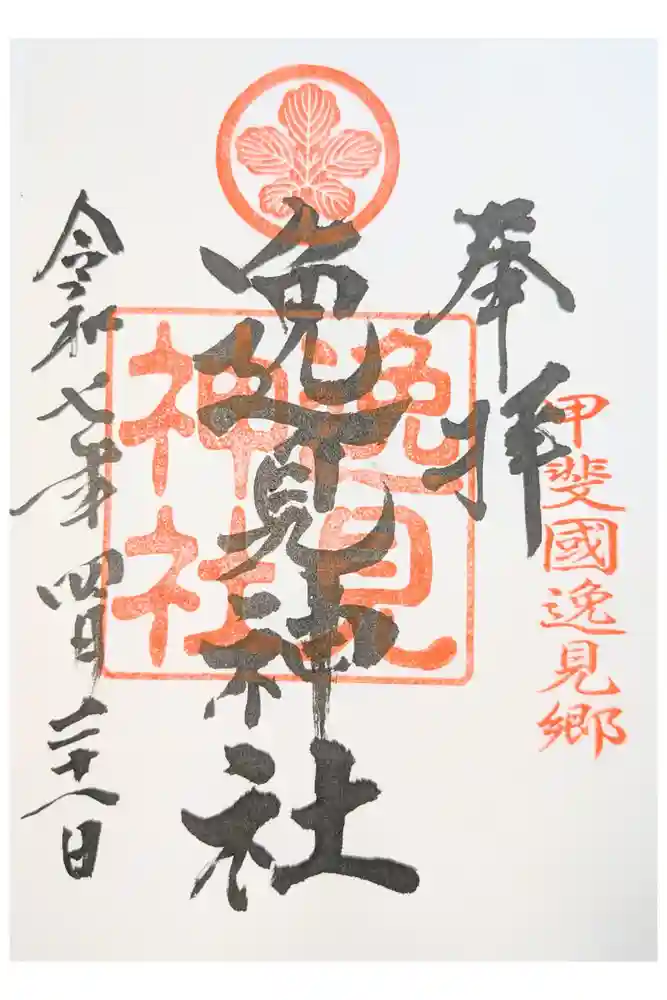 奉拝
甲斐國逸見郷
逸見神社
逸見神社
令和七年四月二十八日